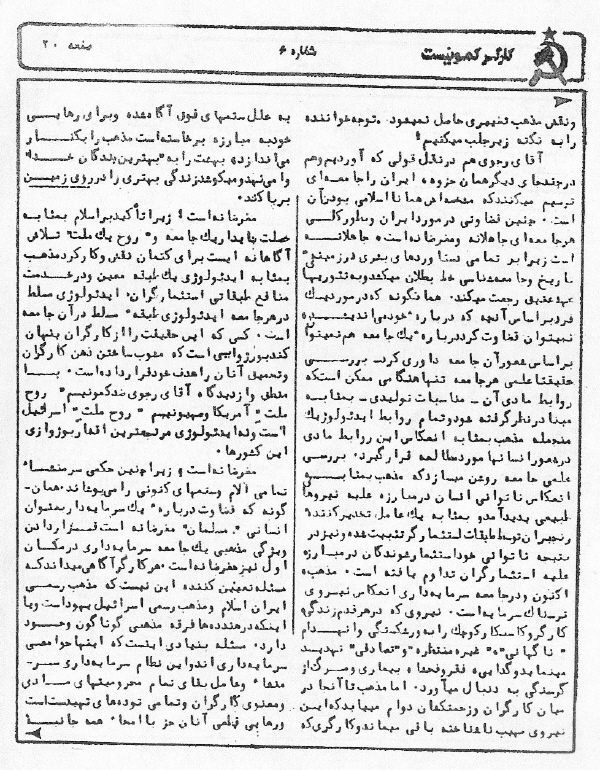 کارگر کمونیست
شماره ۶
صفحه ۲۰
ونقش مذهب تغییری حاصل نمیشود. توجه خواننده
را به نکته زیر جلب میکنیم:
آقای رجوی هم در نقل قولی که آوردیم وهم
درجنده‌ای دیگر همان جزوه، ایران را جامعه‌ای
ترسیم میکند که مشخصه‌اش همانا اسلامی بودن آن
است. چنین قضاوتی در مورد ایران وبطور کلی
هر جامعه‌ای جاهلانه ومغرضانه است. جاهلانه
است زیرا بر تمامی دستاوردهای بشری در زمینه
تاریخ وجامعه‌شناسی خط بطلان میکشد وبه تئوریهای
عهد عتیق رجعت میکند. همانگونه که در مورد یک
فرد بر اساس آنچه که درباره خود می‌اندیشد
نمیتوان قضاوت کرد درباره یک جامعه هم نمیتوان
بر اساس شعور آن جامعه داوری کرد. بررسی
حقیقتا علمی هر جامعه تنها هنگامی ممکن است که
روابط مادی آن - مناسبات تولیدی - بمثابه
مبنا در نظر گرفته شود وتمام روابط ایدئولوژیک
منجمله مذهب بمثابه انعکاس این روابط مادی
در شعور انسانها مورد مطالعه قرار گیرد. بررسی
علمی جامعه روشن میسازد که مذهب بمثابه
انعکاس ناتوانی انسان در مبارزه علیه نیروهای
طبیعی پدید آمد و بمثابه یک عامل تخدیر کننده
رنجبران توسط طبقات استثمارگر تثبیت شد ونیز در
نتیجه ناتوانی خود استثمار شوندگان در مبارزه
علیه استثمارگران تداوم یافته است. مذهب
اکنون ودر جامعه سرمایه‌داری انعکاس نیروی
ترسناک سرمایه است. نیروی که در هر قدم زندگی
کارگر وکاسبکار کوچک را به ورشکستگی وانهدام
"ناگهانی" و "غیره منتظره" و "تصادفی" تهدید
مینماید وگدایی، فقر وفحشاء بیماری ومرگ از
گرسنگی به دنبال میآورد. اما مذهب تا آنجا در
میان کارگران وزحمتکشان دوام مییابد که این
نیروی مهیب ناشناخته باقی میماند وکارگری که
به علل ستمهای فوق آگاه شده وبرای رهایی
خود به مبارزه برخاسته است مذهب را بکنار
می‌اندازد، بهشت را به "بهترین بندگان خدا"
وامی‌نهد ومیکوشد زندگی بهتری را در روی زمین
برپا کند.
مغرضانه است! زیرا تأکید بر اسلام بمثابه
خصلت پایدار یک جامعه و "روح یک ملت" تلاش
آگاهانه ایست برای کتمان نقش وکارکرد مذهب
بمثابه ایدئولوژی یک طبقه معین ودر خدمت
منافع طبقاتی استثمارگران. ایدئولوژی مسلط
در هر جامعه ایدئولوژی طبقه مسلط در آن جامعه
است. کسی که این حقیقت را از کارگران پنهان
کند بورژوایی است که مغشوش ساختن ذهن کارگران
وتحمیق آنان را هدف خود قرار داده است. با
منطق وازدیدگاه آقای رجوی ضدکمونیسم "روح
ملت" آمریکا وصهیونیسم "روح ملت" اسرائیل
است ونه ایدئولوژی مرتجعترین اقشار بورژوازی
این کشورها.
مغرضانه است! زیرا چنین حکمی سرمنشاء
تمامی آلام وستمهای کنونی را می‌پوشاند. همان-
گونه که قضاوت درباره یک سرمایه‌دار بعنوان
انسانی "مسلمان" مغرضانه است قرار دادن
ویژگی مذهبی یک جامعه سرمایه‌داری در مکان
اول نیز مغرضانه است. هر کارگر آگاهی میداند که
مسئله تعیین کننده این نیست که مذهب رسمی
ایران اسلام ومذهب رسمی اسرائیل یهود است ویا
اینکه در هند ده‌ها فرقه مذهبی گوناگون وجود
دارد. مسئله بنیادی اینست که اینها جوامعی
سرمایه‌داری اند واین نظام سرمایه‌داری سر-
منشاء وعامل بقای تمام محرومیتهای مادی
ومعنوی کارگران وتمامی توده‌های تهیدست است
ورهایی قطعی آنان جز با امحاء همه جانبه